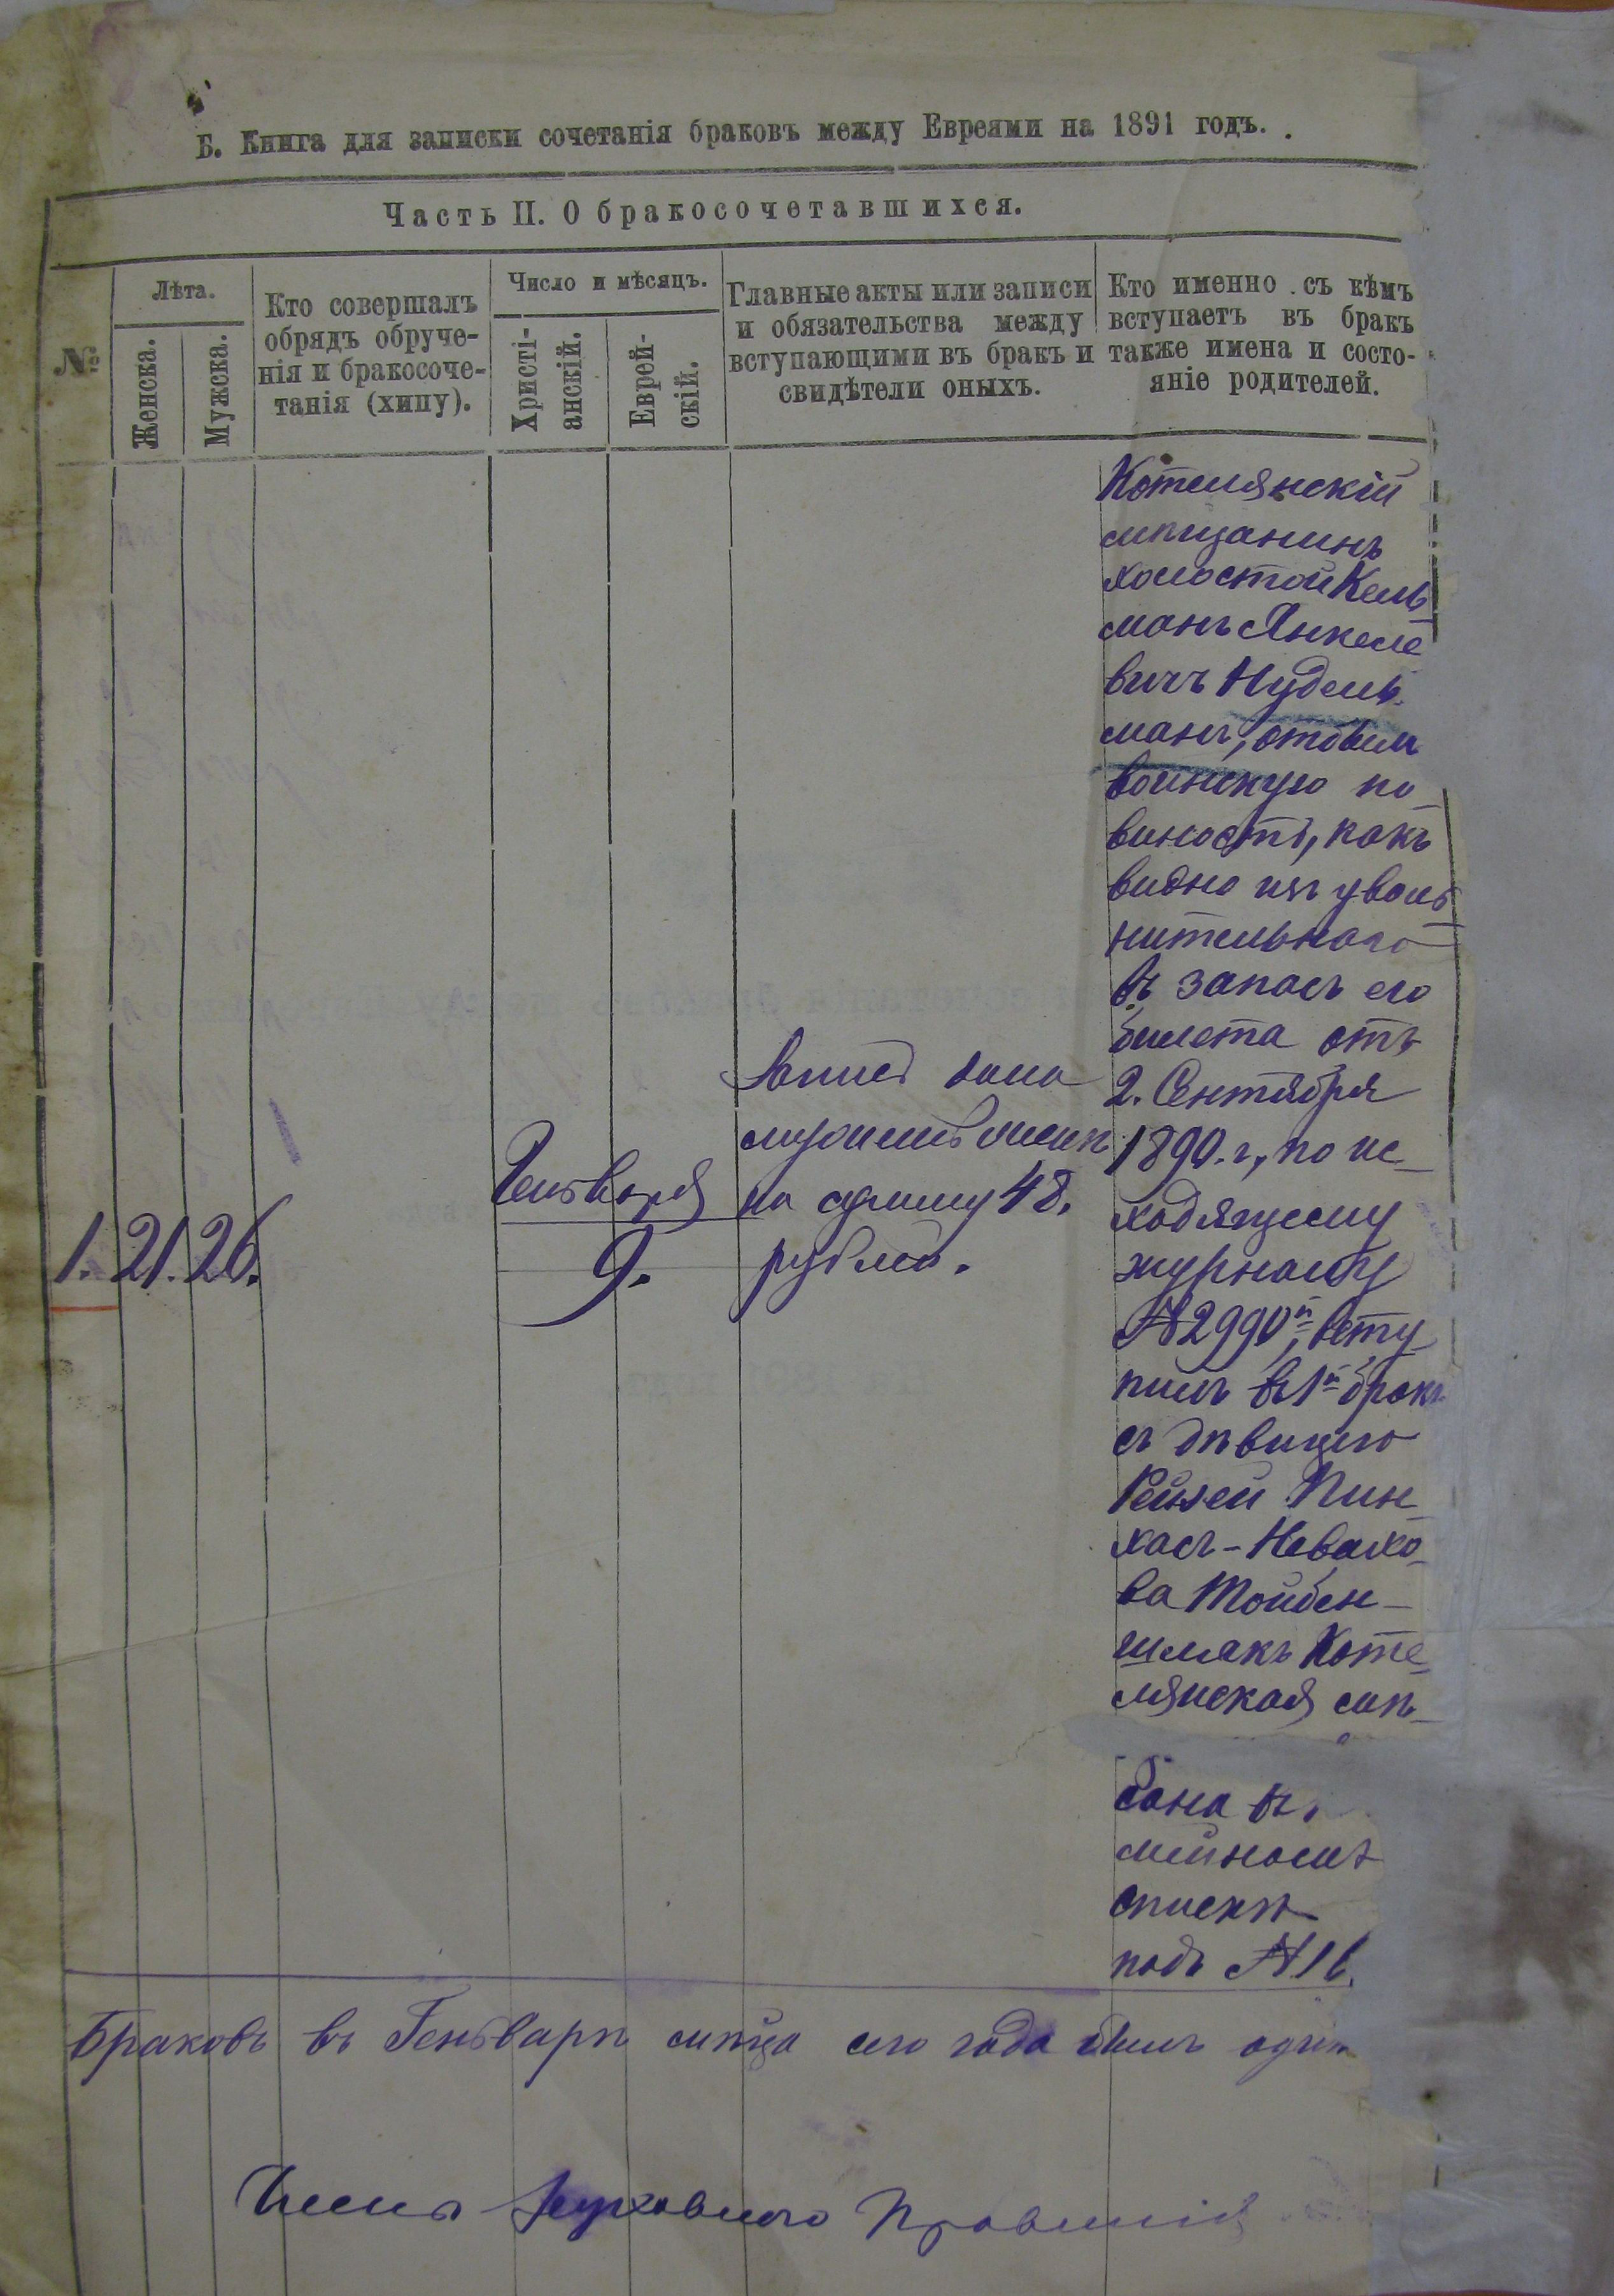 Б. Книга для записки сочетанія браковъ между Евреями на 1891 годъ.
Часть II. О бракосочетавшихся.
№
Лѣта.
Женска.
Мужска.
Кто совершалъ
обрядъ обруче-
нія и бракосоче-
танія (хипу).
Число и мѣсяцъ.
Христі-
анскій.
Еврей-
скій.
Главные акты или записи
и обязательства между
вступающими въ бракъ и
свидѣтели оныхъ.
Кто именно съ кѣмъ
вступаетъ въ бракъ
также имена и состо-
яніе родителей.
1. 21. 26.
Генваря
9.
дана
на сумму 48.
рублей.
Котелянскій
мѣщанинъ
холостой Кель
манъ Янкеле
вичъ Нудель
манъ, отбылъ
воинскую по
виность, какъ
видно изъ уволь
нительнаго
въ запасъ его
билета отъ
2. Сентября
1890. г., по ис-
ходящему
журналу
№ 2990й, всту
пилъ въ 1й бракъ
съ дѣвицею
Рейзей Пин
хасъ-Невахо
ва Тойбен-
шлякъ Коте
лянская мѣ-
сана въ
мейномъ
спискѣ
подъ № 16.
Браковъ въ Генварѣ мѣца сего года былъ один
Члены Духовного Правленія